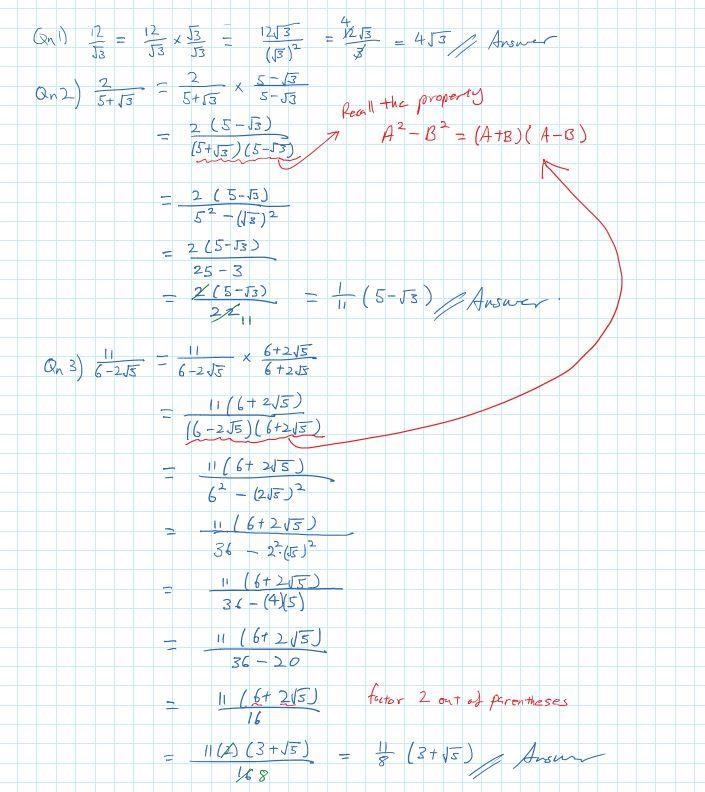 Qn1) 12/√3 = 12/√3 × √3/√3 = 12√3/(√3)² = 4 12√3/3 = 4√3 // Answer
Qn2) 2/(5+√3) = 2/(5+√3) × (5-√3)/(5-√3)
Recall the property
= 2(5-√3)/((5+√3)(5-√3))
A² - B² = (A+B)(A-B)
= 2(5-√3)/(5² - (√3)²)
= 2(5-√3)/(25 - 3)
= 2(5-√3)/22 11 = 1/11 (5-√3) // Answer.
Qn3) 11/(6-2√5) = 11/(6-2√5) × (6+2√5)/(6+2√5)
= 11(6+2√5)/((6-2√5)(6+2√5))
= 11(6+2√5)/(6² - (2√5)²)
= 11(6+2√5)/(36 - 2²·(√5)²)
= 11(6+2√5)/(36-(4)(5))
= 11(6+2√5)/(36-20)
= 11(6+2√5)/16 factor 2 out of parentheses
= 11(2)(3+√5)/16 8 = 11/8 (3+√5) // Answer